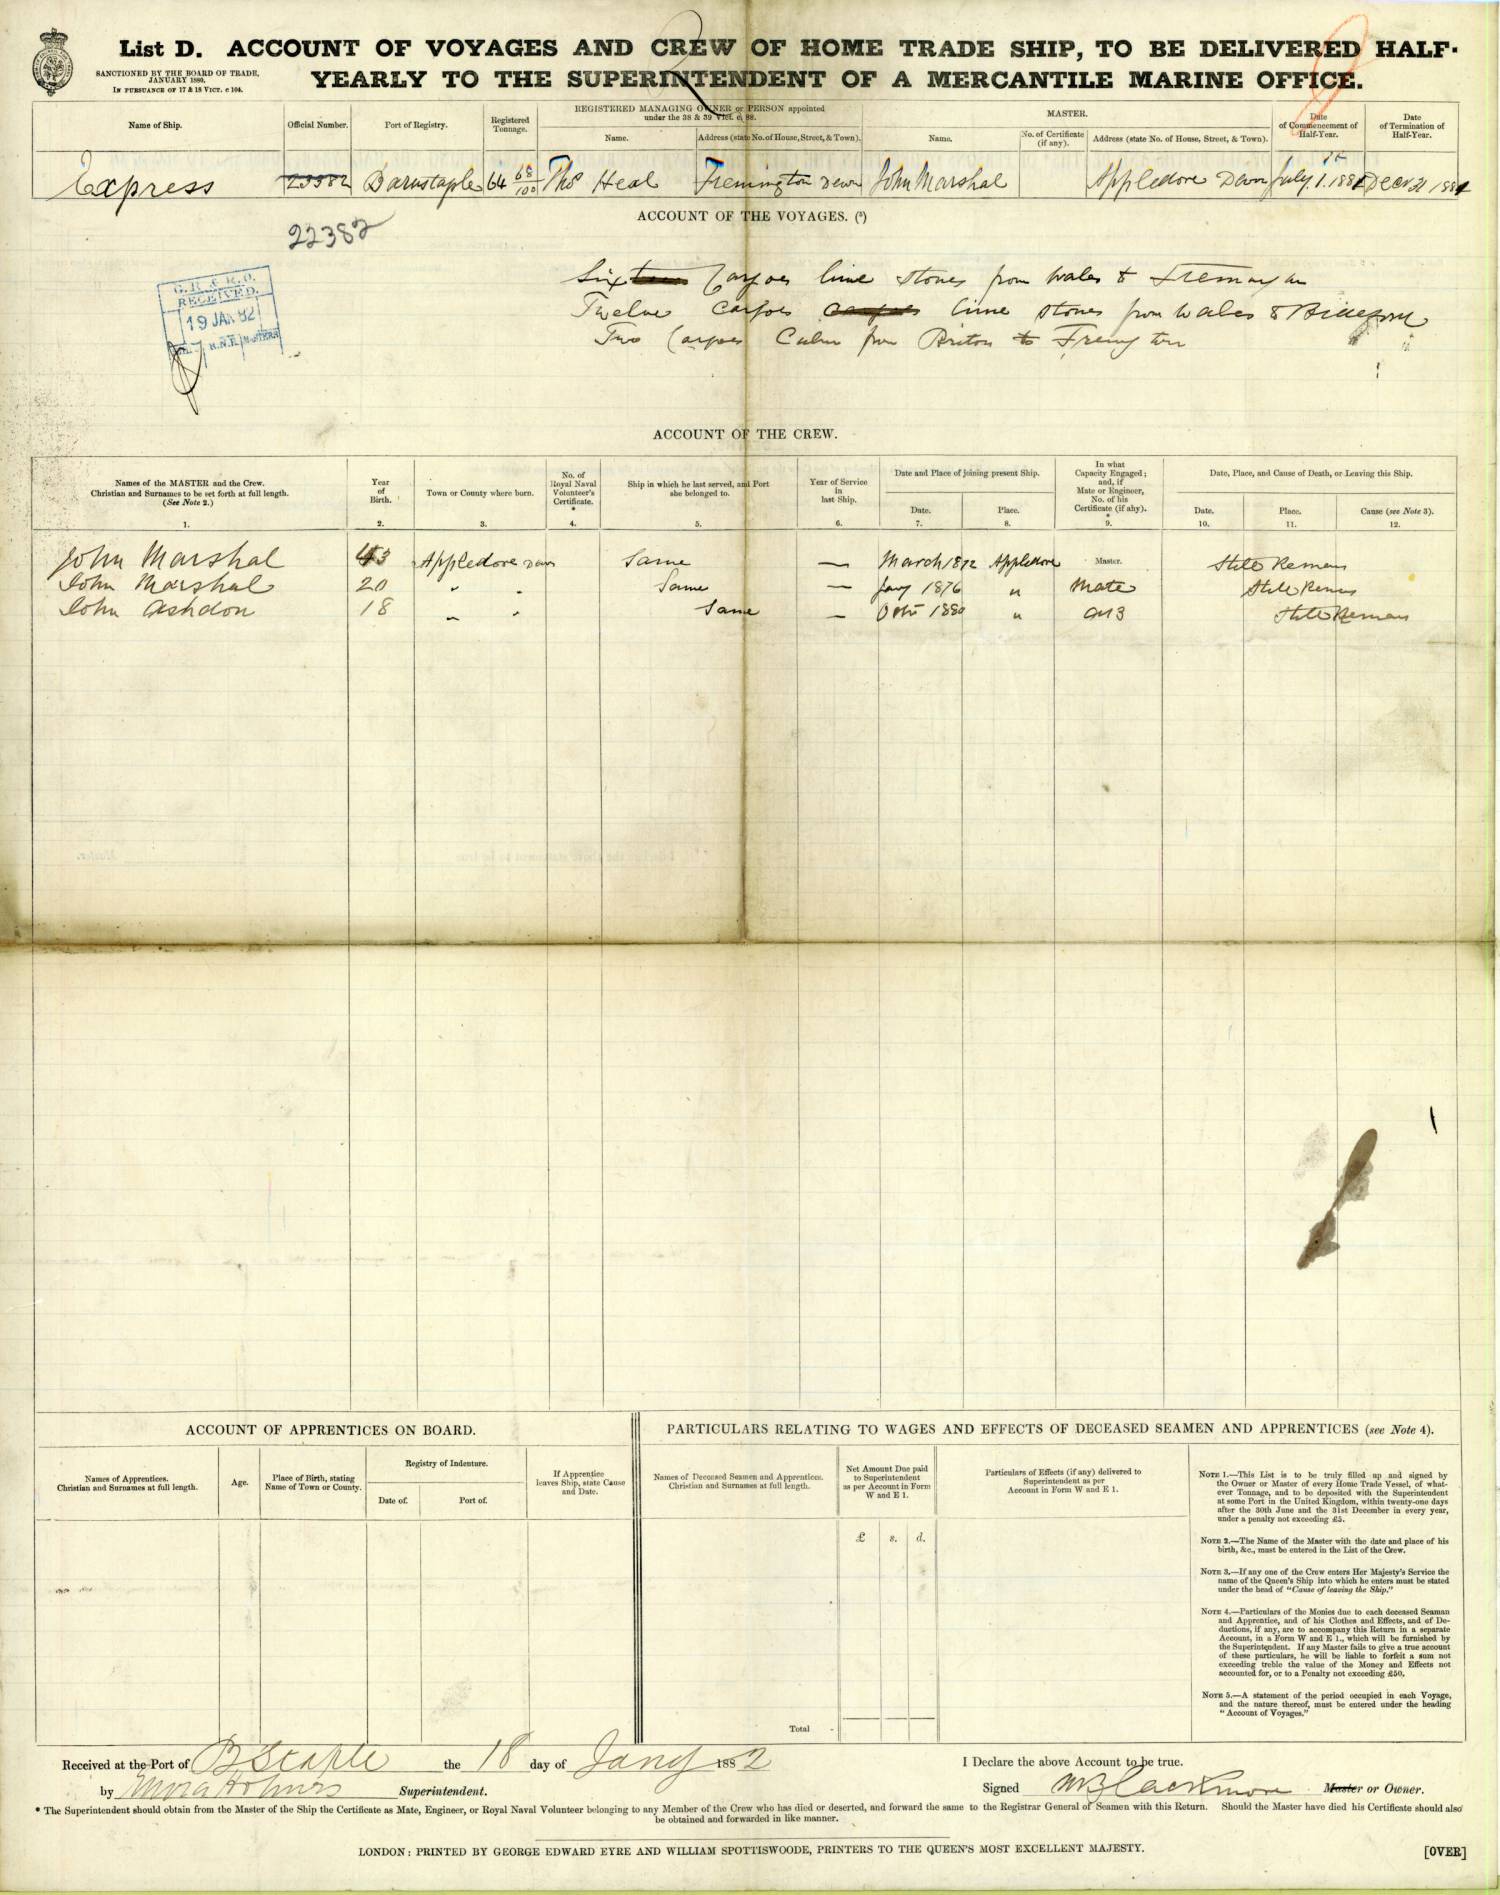 List D. ACCOUNT OF VOYAGES AND CREW OF HOME TRADE SHIP, TO BE DELIVERED HALF-
YEARLY TO THE SUPERINTENDENT OF A MERCANTILE MARINE OFFICE.
SANCTIONED BY THE BOARD OF TRADE,
JANUARY 1880.
IN PURSUANCE OF 17 & 18 VICT. c 104.
Name of Ship.
Official Number.
Port of Registry.
Registered Tonnage.
REGISTERED MANAGING OWNER or PERSON appointed
under the 38 & 39 Vict. c. 88.
Name.
Address (state No. of House, Street, & Town).
MASTER.
Name.
No. of Certificate (if any).
Address (state No. of House, Street, & Town).
Date of Commencement of Half-Year.
Date of Termination of Half-Year.
Express 23382 Barnstaple 64 68/100 Thos Heal Fremington Devon John Marshal Appledore Devon July 1st 1881 Decr 31 1881
22382
ACCOUNT OF THE VOYAGES. (5)
G. R. & R. O.
RECEIVED.
19 JAN 82
R.N.R.
Sixteen Cargoes lime stones from Wales to
Twelve cargoes cargoes lime stones from Wales to Bideford
Two Cargoes Culm from Briton to Fremington
ACCOUNT OF THE CREW.
Names of the MASTER and the Crew.
Christian and Surnames to be set forth at full length.
(See Note 2.)
1.
Year of Birth.
2.
Town or County where born.
3.
No. of Royal Naval Volunteer's Certificate.
*
4.
Ship in which he last served, and Port she belonged to.
5.
Year of Service in last Ship.
6.
Date and Place of joining present Ship.
Date.
7.
Place.
8.
In what Capacity Engaged; and, if Mate or Engineer, No. of his Certificate (if any).
*
9.
Date, Place, and Cause of Death, or Leaving this Ship.
Date.
10.
Place.
11.
Cause (see Note 3).
12.
John Marshal 43 Appledore Devon Same — March 1872 Appledore Master. Still Remans
John Marshal 20 " " Same — Jany 1876 " Mate Still Remans
John Ashdon 18 " " Same — Octr 1880 " Still Remans
ACCOUNT OF APPRENTICES ON BOARD.
Names of Apprentices.
Christian and Surnames at full length.
Age.
Place of Birth, stating Name of Town or County.
Registry of Indenture.
Date of.
Port of.
If Apprentice leaves Ship, state Cause and Date.
PARTICULARS RELATING TO WAGES AND EFFECTS OF DECEASED SEAMEN AND APPRENTICES (see Note 4).
Names of Deceased Seamen and Apprentices.
Christian and Surnames at full length.
Net Amount Due paid to Superintendent as per Account in Form W and E 1.
£ s. d.
Particulars of Effects (if any) delivered to Superintendent as per Account in Form W and E 1.
Total -
NOTE 1.—This List is to be truly filled up and signed by
the Owner or Master of every Home Trade Vessel, of what-
ever Tonnage, and to be deposited with the Superintendent
at some Port in the United Kingdom, within twenty-one days
after the 30th June and the 31st December in every year,
under a penalty not exceeding £5.
NOTE 2.—The Name of the Master with the date and place of his
birth, &c., must be entered in the List of the Crew.
NOTE 3.—If any one of the Crew enters Her Majesty's Service the
name of the Queen's Ship into which he enters must be stated
under the head of "Cause of leaving the Ship."
NOTE 4.—Particulars of the Monies due to each deceased Seaman
and Apprentice, and of his Clothes and Effects, and of De-
ductions, if any, are to accompany this Return in a separate
Account, in a Form W and E 1., which will be furnished by
the Superintendent. If any Master fails to give a true account
of these particulars, he will be liable to forfeit a sum not
exceeding treble the value of the Money and Effects not
accounted for, or to a Penalty not exceeding £50.
NOTE 5.—A statement of the period occupied in each Voyage,
and the nature thereof, must be entered under the heading
"Account of Voyages."
Received at the Port of BStaple the 18 day of Jany 1882
by Superintendent.
I Declare the above Account to be true.
Signed W Blackmore Master or Owner.
* The Superintendent should obtain from the Master of the Ship the Certificate as Mate, Engineer, or Royal Naval Volunteer belonging to any Member of the Crew who has died or deserted, and forward the same to the Registrar General of Seamen with this Return. Should the Master have died his Certificate should also
be obtained and forwarded in like manner.
LONDON: PRINTED BY GEORGE EDWARD EYRE AND WILLIAM SPOTTISWOODE, PRINTERS TO THE QUEEN'S MOST EXCELLENT MAJESTY.
[OVER]